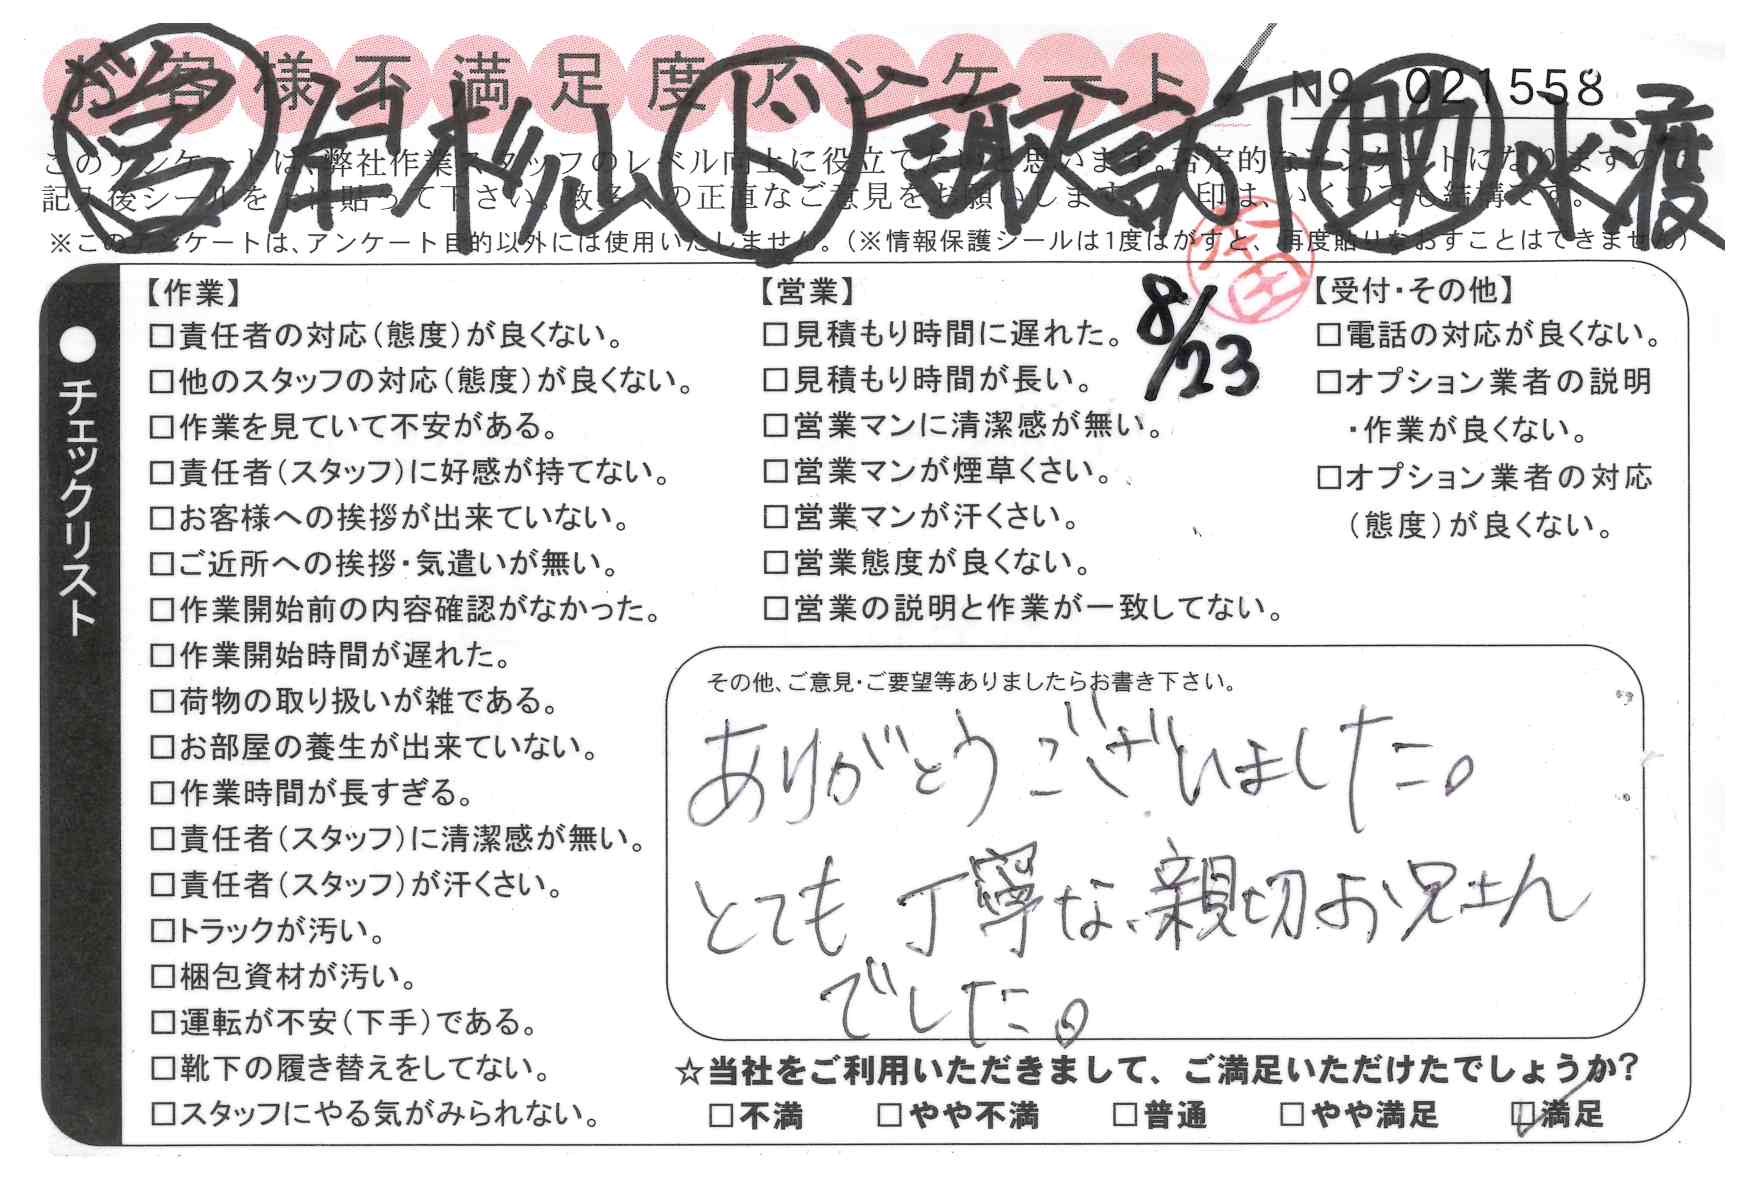 お客様不満足度アンケート
No 021558
営 岸松 ド 諏訪 助 水渡
このアンケートは、弊社作業スタッフのレベル向上に役立てたいと思います。否定的なアンケートになりますの
記入後シールを上に貼って下さい。数多くの正直なご意見をお願いします。 印は、いくつでも結構です。
※このアンケートは、アンケート目的以外には使用いたしません。（※情報保護シールは1度はがすと、再度貼りなおすことはできません）
8/23
●チェックリスト
【作業】
□責任者の対応（態度）が良くない。
□他のスタッフの対応（態度）が良くない。
□作業を見ていて不安がある。
□責任者（スタッフ）に好感が持てない。
□お客様への挨拶が出来ていない。
□ご近所への挨拶・気遣いが無い。
□作業開始前の内容確認がなかった。
□作業開始時間が遅れた。
□荷物の取り扱いが雑である。
□お部屋の養生が出来ていない。
□作業時間が長すぎる。
□責任者（スタッフ）に清潔感が無い。
□責任者（スタッフ）が汗くさい。
□トラックが汚い。
□梱包資材が汚い。
□運転が不安（下手）である。
□靴下の履き替えをしてない。
□スタッフにやる気がみられない。
【営業】
□見積もり時間に遅れた。
□見積もり時間が長い。
□営業マンに清潔感が無い。
□営業マンが煙草くさい。
□営業マンが汗くさい。
□営業態度が良くない。
□営業の説明と作業が一致してない。
【受付・その他】
□電話の対応が良くない。
□オプション業者の説明
・作業が良くない。
□オプション業者の対応
（態度）が良くない。
その他、ご意見・ご要望等ありましたらお書き下さい。
ありがとうございました。
とても丁寧な、親切お兄さん
でした。
☆当社をご利用いただきまして、ご満足いただけたでしょうか？
□不満 □やや不満 □普通 □やや満足 ☑満足